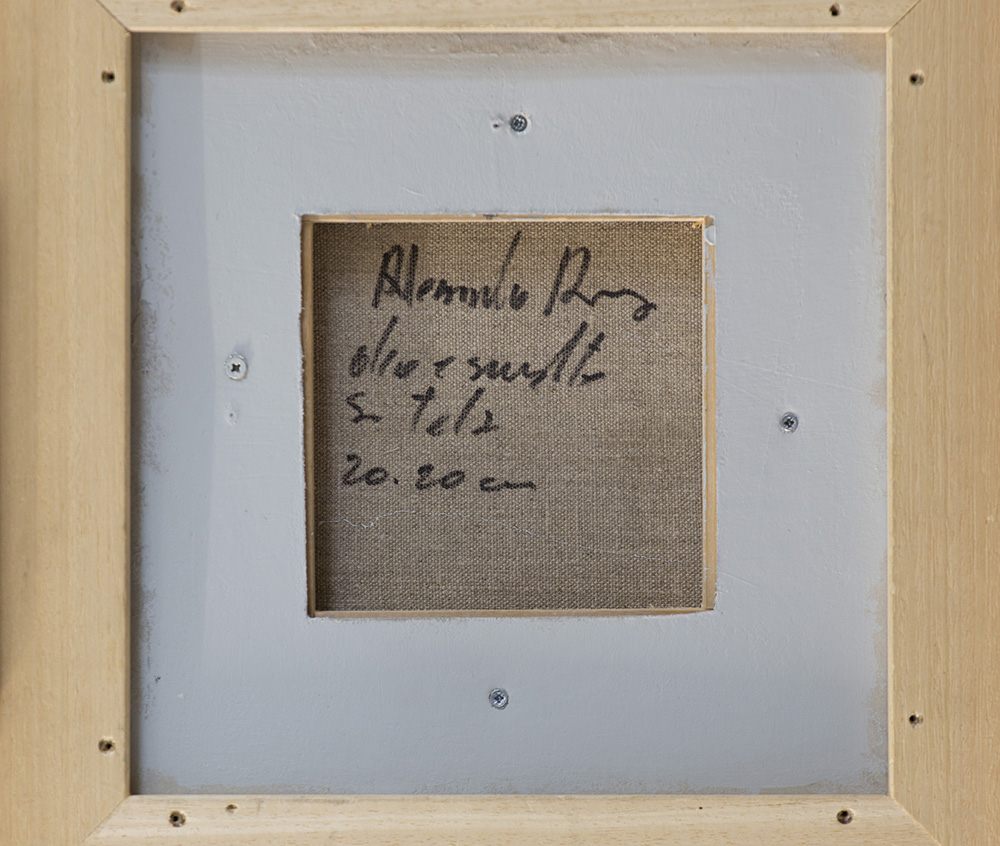 Alessandro Russo
olio e smalto
su tela
20.20 cm